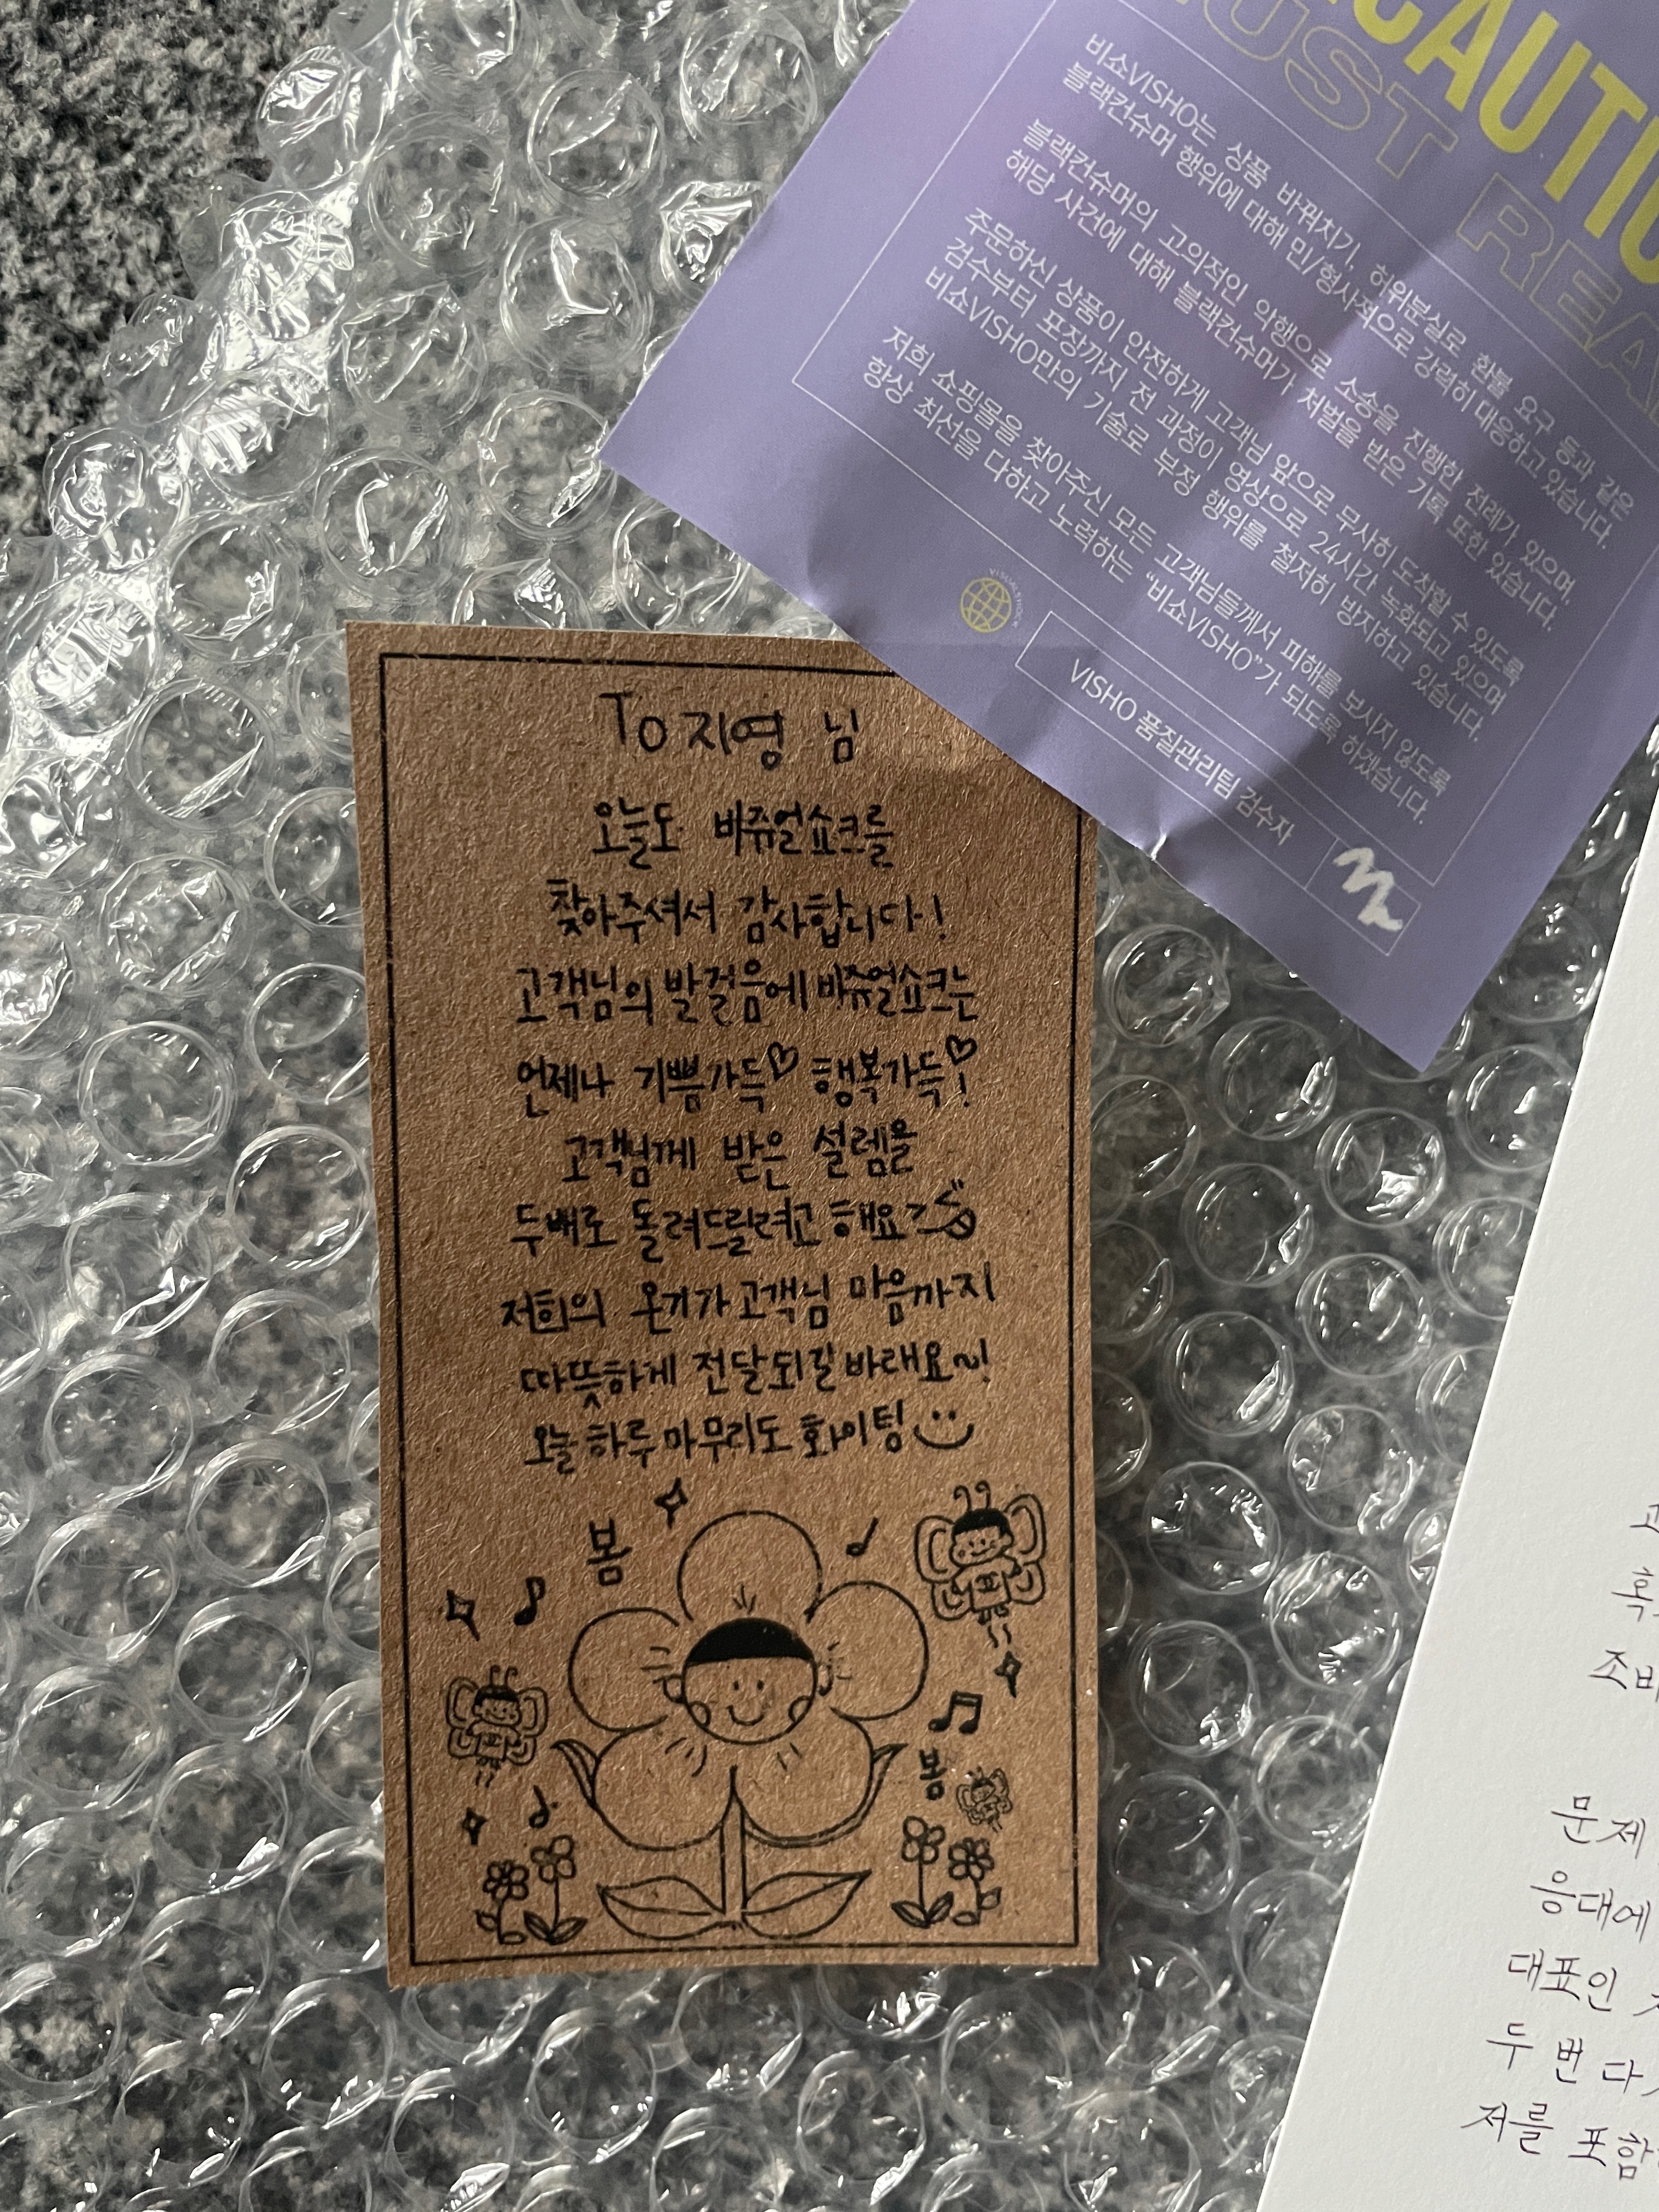 CAUTIO
UST REA
비쇼VISHO는 상품 바꿔치기, 허위분실로 환불 요구 등과 같은
블랙컨슈머 행위에 대해 민/형사적으로 강력히 대응하고 있습니다.
블랙컨슈머의 고의적인 악행으로 소송을 진행한 전례가 있으며,
해당 사건에 대해 블랙컨슈머가 처벌을 받은 기록 또한 있습니다.
주문하신 상품이 안전하게 고객님 앞으로 무사히 도착할 수 있도록
검수부터 포장까지 전 과정이 영상으로 24시간 녹화되고 있으며
비쇼VISHO만의 기술로 부정 행위를 철저히 방지하고 있습니다.
저희 쇼핑몰을 찾아주신 모든 고객님들께서 피해를 보시지 않도록
항상 최선을 다하고 노력하는 "비쇼VISHO"가 되도록 하겠습니다.
VISHO 품질관리팀 검수자
To 지영 님
오늘도 비쥬얼쇼크를
찾아주셔서 감사합니다!
고객님의 발걸음에 비쥬얼쇼크는
언제나 기쁨가득♡ 행복가득♡!
고객님께 받은 설렘을
두배로 돌려드릴려고 해요
저희의 온기가 고객님 마음까지
따뜻하게 전달되길 바래요~!
오늘 하루 마무리도 화이팅
봄
봄
문제
응대에
대표인
두 번 다
저를 포함